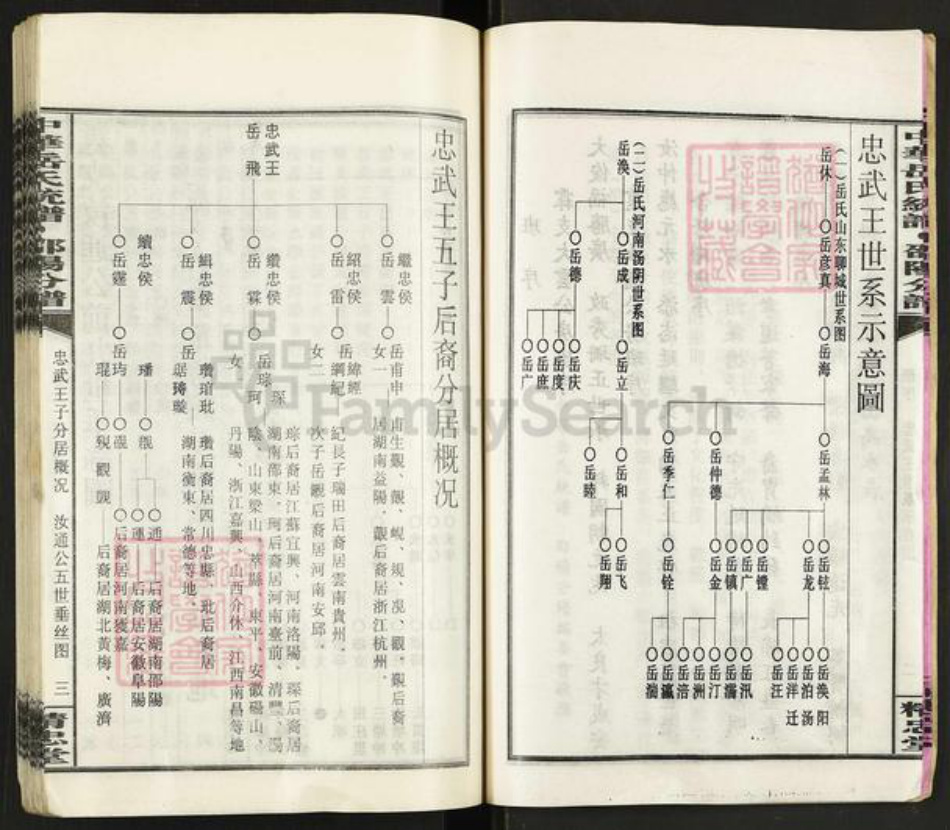 忠武王世系示意圖
(一)岳氏山东聊城世系图
岳休
岳彦真
岳海
岳孟林
岳仲德
岳季仁
岳铉
岳龙
岳镗
岳广
岳镇
岳金
岳铨
岳涣 汤阳
岳泊 汤
岳洋 迁
岳汪
岳汛
岳汀
岳洲
岳涪
岳瀛
(二)岳氏河南汤阴世系图
岳涣
岳成
岳德
岳立
岳庆
岳度
岳庶
岳广
岳和
岳睦
岳飞
岳翔
忠武王五子后裔分居概况
忠武王
岳飛
繼忠侯
岳雲
紹忠侯
岳雷
纘忠侯
岳霖
緝忠侯
岳震
續忠侯
岳霆
岳甫申
女一
岳緯經
綱紀
女二
岳琮琛
珂
女
岳
岳均
璠
琨
居湖南益陽
觀后裔居浙江杭州
紀長子瑞田后裔居雲南貴州
次子岳觀后裔居河南安邱
琮后裔居江蘇宜興、河南洛陽、琛后裔居
湖南邵東、珂后裔居河南臺前、清豐、湯
陰、山東梁山、莘縣、東平、安徽碭山、
丹陽、浙江嘉興、山西介休、江西南昌等地
瓚后裔居四川忠縣、玭后裔居
湖南衡東、常德等地
通 后裔居湖南邵陽
運 后裔居安徽阜陽
后裔居河南獲嘉
后裔居湖北黄梅、廣濟
忠武王子分居概况 汝通公五世垂丝图 三
中華岳氏統譜·邵陽分譜
精忠堂
FamilySearch